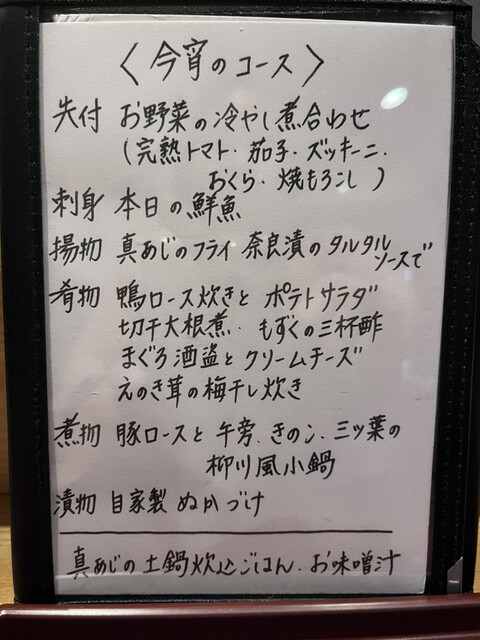 〈今宵のコース〉
先付 お野菜の冷やし煮合わせ
(完熟トマト・茄子・ズッキーニ・
おくら・焼もろこし)
刺身 本日の鮮魚
揚物 真あじのフライ 奈良漬のタルタル
ソースで
肴物 鴨ロース炊きと ポテトサラダ
切干大根煮・もずくの三杯酢
まぐろ酒盗とクリームチーズ
えのき茸の梅干し炊き
煮物 豚ロースと 午旁、きのこ、三ッ葉の
柳川風小鍋
漬物 自家製 ぬかづけ
真あじの土鍋炊込ごはん、お味噌汁